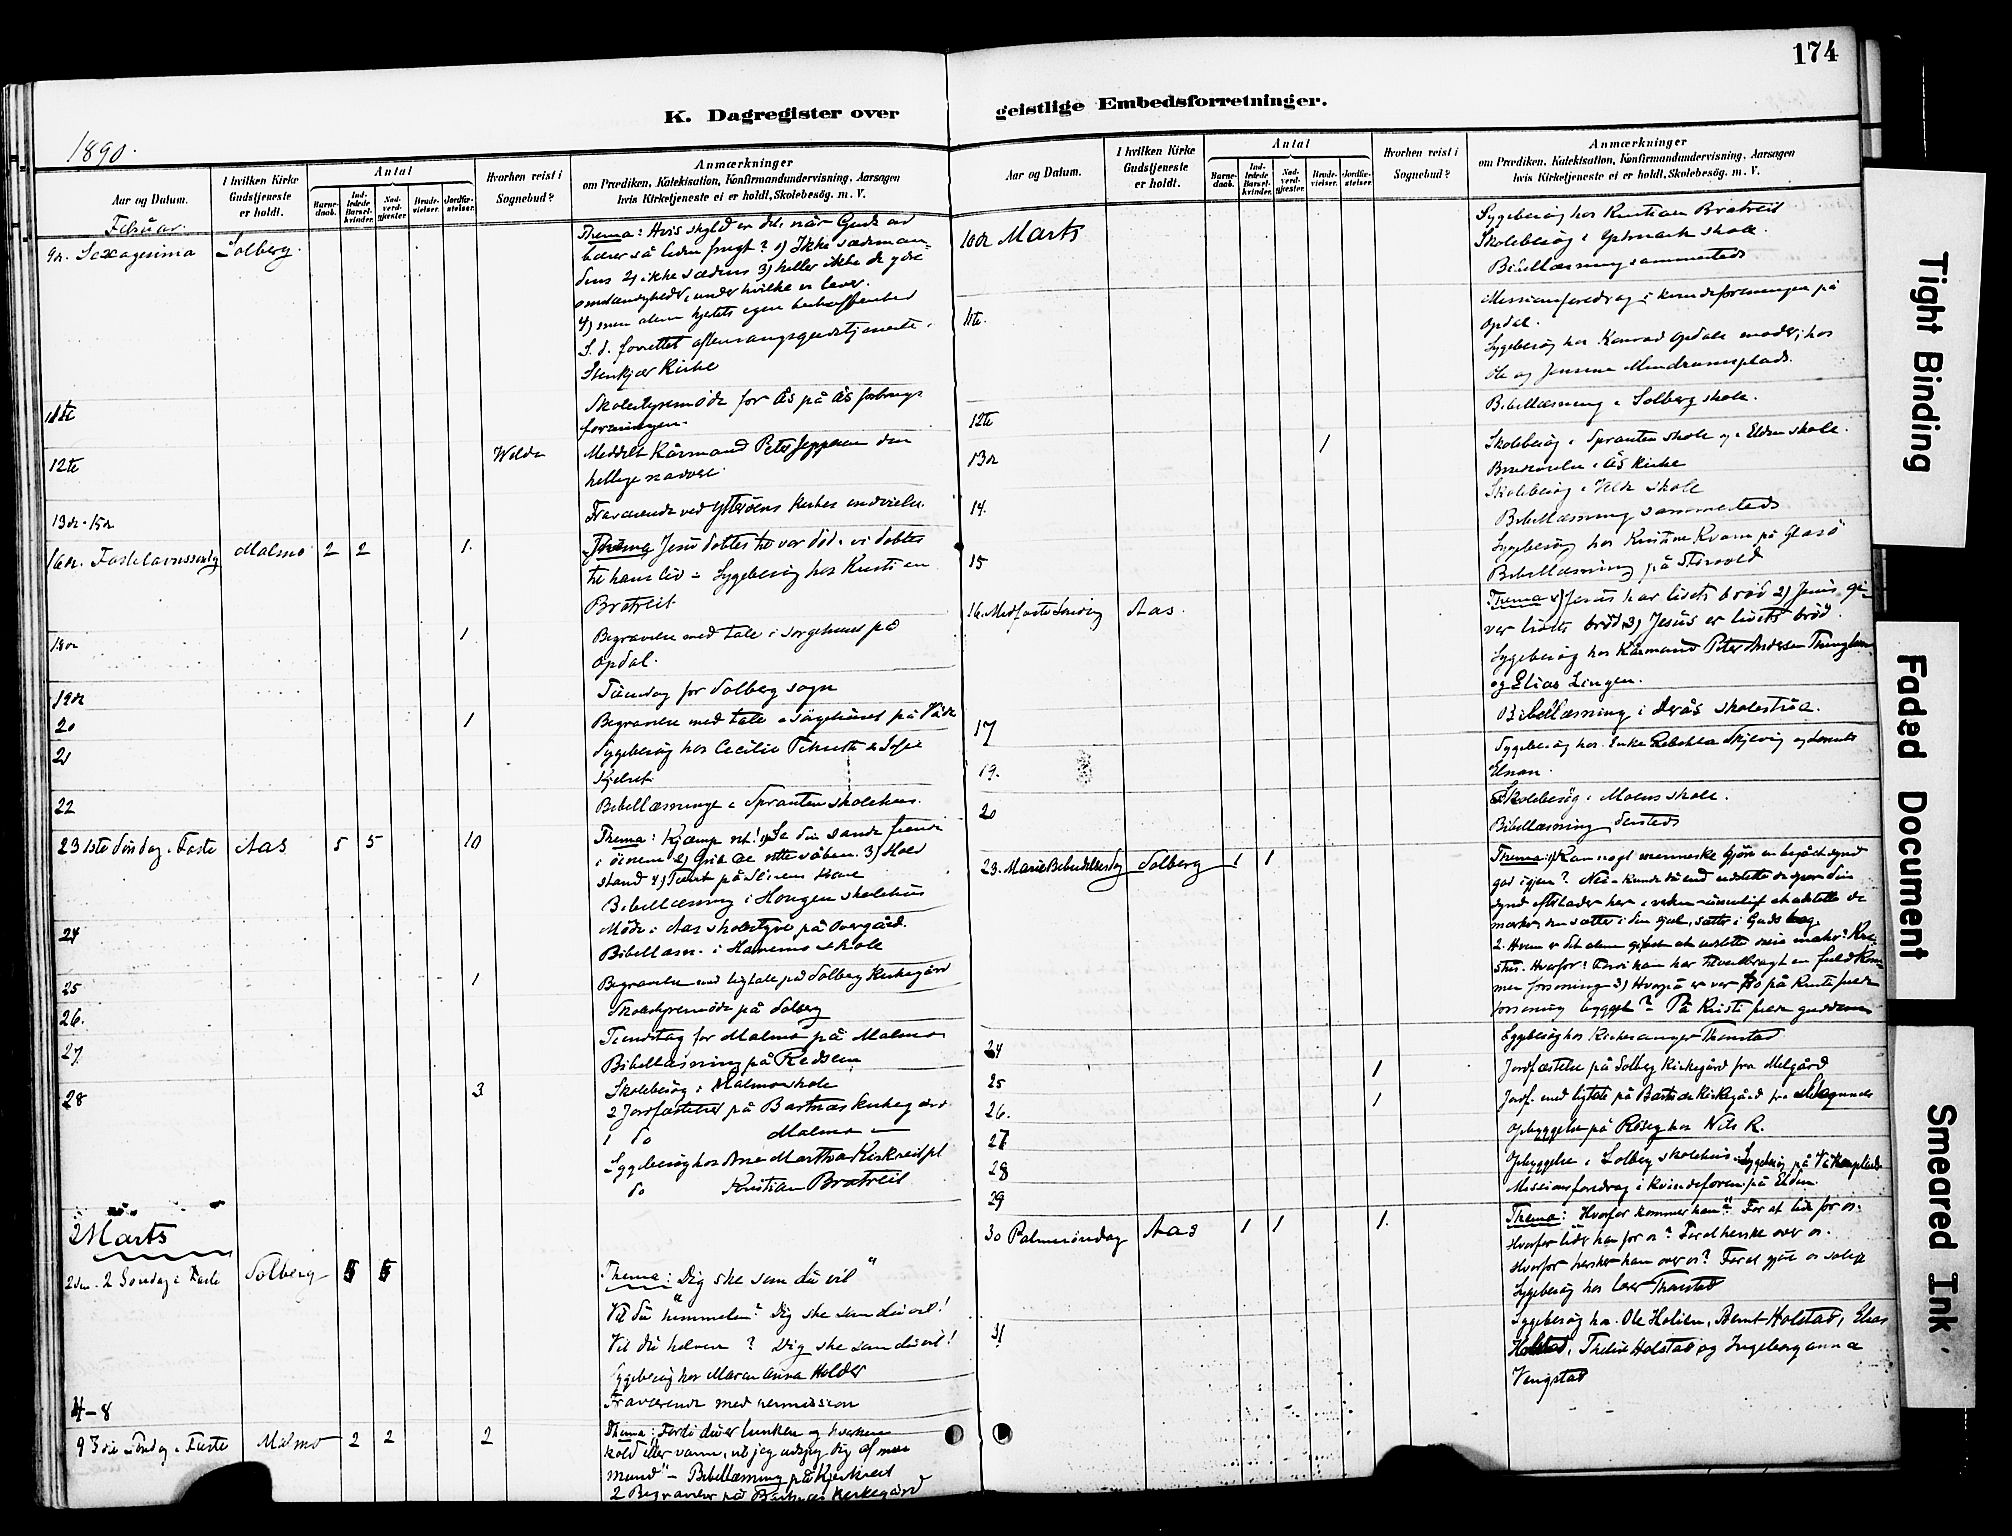 174
K. Dagregister over
geistlige Embedsforretninger.
1890.
Aar og Datum.
I hvilken Kirke Gudstjeneste er holdt.
Antal
Barnedaab.
Indledede Barselkvinder.
Nadverdgjester
Brudevielser.
Jordfæstelser.
Hvorhen reist i Sognebud?
Anmærkninger
om Prædiken, Katekisation, Konfirmandundervisning, Aarsagen
hvis Kirketjeneste ei er holdt, Skolebesøg. m. V.
Februar.
9de. Sexagesima Solberg.
Thema: Hvis skyld er det, når Guds ord
bærer så liden frugt? 1) Ikke sædman-
dens 2) ikke sædens 3) heller ikke de ydre
omstændigheder, under hvilke vi lever.
4) men alene hjertets egen beskaffenhed
S. d. forrettet aftensangsgudstjeneste i
Stenkjær Kirke
11te
Skolestyremøde for Ås på Ås forbrugs
foreningen.
12te Welde
Meddelt Kårmand Peter Jeppesen den
hellige nadvere
13de-15de
Fraværende ved Ytterøens kirkes indvielse.
16de. Fastelavnssøndag Malmo 2 2 1.
Thema Jesu dåbtes til vor død. vi døbtes
til hans liv - Sygebesøg hos Kristian
Bratreit.
18de 1
Begravelse med tale i sørgehuset på
Opdal.
19de
Tiendag for Solberg sogn
20 1
Begravelse med tale i sørgehuset på
21
Sygebesøg hos Cecilie
22
Bibellæsning i Sprauten skolehus.
23 1ste Søndag i Faste Aas 5 5 10
Thema: Kjæmp ret! 1) Se din sande fiende
i øinene 2) Grib de rette våben. 3) Hold
stand 4) Tænk på Seirens krone
Bibellæsning i Hougen skolehus
24
Møde i Aas skolestyre på Overgård.
Bibellæsn. i skole
25 1
Begravelse med ligtale på Solberg Kirkegård
26.
Skolestyremøde på Solberg
27
Tiendetag for Malmo på Malmo
Bibellæsning på Redsem
28 3
Skolebesøg i Malmo skole
2 Jordfæstelser på Bartnæs kirkegård
1 do Malmo —
Sygebesøg hos Ane Martha Kirkreitpl
do Kristian Bratreit
Marts
2den. 2 Søndag i Faste Solberg 5 5
Thema: Dig ske som du vil"
Vil du himmelen? Dig ske som du vil!
Vil du helvede? Dig ske som du vil!
Sygebesøg hos Maren Anna Holder
4-8
Fraværende med permission
9 3die Søndag i Faste Malmo 2 2 2
Thema: Fordi du er lunken og hverken
kold eller varm, vil jeg udspy dig af min
mund" - Bibellæsning på Kjerkreit
2 Begravelser på Bartnæs Kirkegård
Aar og Datum.
I hvilken Kirke Gudstjeneste er holdt.
Antal
Barnedaab.
Indledede Barselkvinder.
Nadverdgjester.
Brudevielser.
Jordfæstelser.
Hvorhen reist i Sognebud?
Anmærkninger
om Prædiken, Katekisation, Konfirmandundervisning, Aarsagen
hvis Kirketjeneste ei er holdt, Skolebesøg. m. V.
10de Marts
Sygebesøg hos Kristian Bratreit
Skolebesøg i skole.
Bibellæsning sammesteds
11te.
Missionsforedrag i kvindeforeningen på
Opdal.
Sygebesøg hos Konrad Opdals moder, hos
Ole og Jensine
12te
Bibellæsning i Solberg skole.
13de 1
Skolebesøg i Sprauten skole og i Elden skole.
Brudevielse i Ås kirke
14.
Skolebesøg i Velde skole
Bibellæsning sammesteds
15
Sygebesøg hos Kristine Kvam på
Bibellæsning på
16. Midfaste Søndag Aas.
Thema 1) Jesus har livets brød 2) Jesus gi-
ver livets brød 3) Jesus er livets brød.
Sygebesøg hos Kårmand Peter Andersen
og Elias Lingen.
17
Bibellæsning i Derås skolestue.
19.
Sygebesøg hos Enke Rebekka Skjelvig og
Elnan.
20
Skolebesøg i Moens skole.
Bibellæsning dersteds
23. Mariæ Bebudelsesdag Solberg 1 1
Thema: 1) Kan noget menneske gjøre en begået synd
god igjen? Nei - kunde du end udslette de spor din
synd efterlader her i verden umuligt at udslette de
mærker den sætter i din sjæl, sætter i Guds bog.
2. Hvem er det alene givet at udslette disse mærker? Kri-
stus. Hvorfor? Fordi han har tilveiebragt en fuldkom-
men forsoning 3) Hvorpå er vor tro på Kristi fulde
forsoning bygget? På Kristi fulde guddom
24
Sygebesøg hos Kirkesanger Thanstad
25 1
Jordfæstelse på Solberg Kirkegård fra Melgård
26. 1
Jordf. med ligtale på Bartnes Kirkegård fra
27
Opbyggelse på Røseg hos Nils R.
28
Opbyggelse i Solberg skolehus. Sygebesøg på
29
Missionsforedrag i Kvindeforen. på Elden.
30 Palmesøndag Aas 1 1 1.
Thema: "Hvorfor kommer han?" For at lide for os.
Hvorfor lider han for os? For at herske over os.
Hvorfor hersker han over os? For at gjøre os salige
Sygebesøg hos lærer Thanstad
31
Sygebesøg hos Ole Holien, Bernt Holstad, Elias
Holstad, Holstad og Ingeborganna
Vengstad
Tight Binding
Faded Document
Smeared Ink.